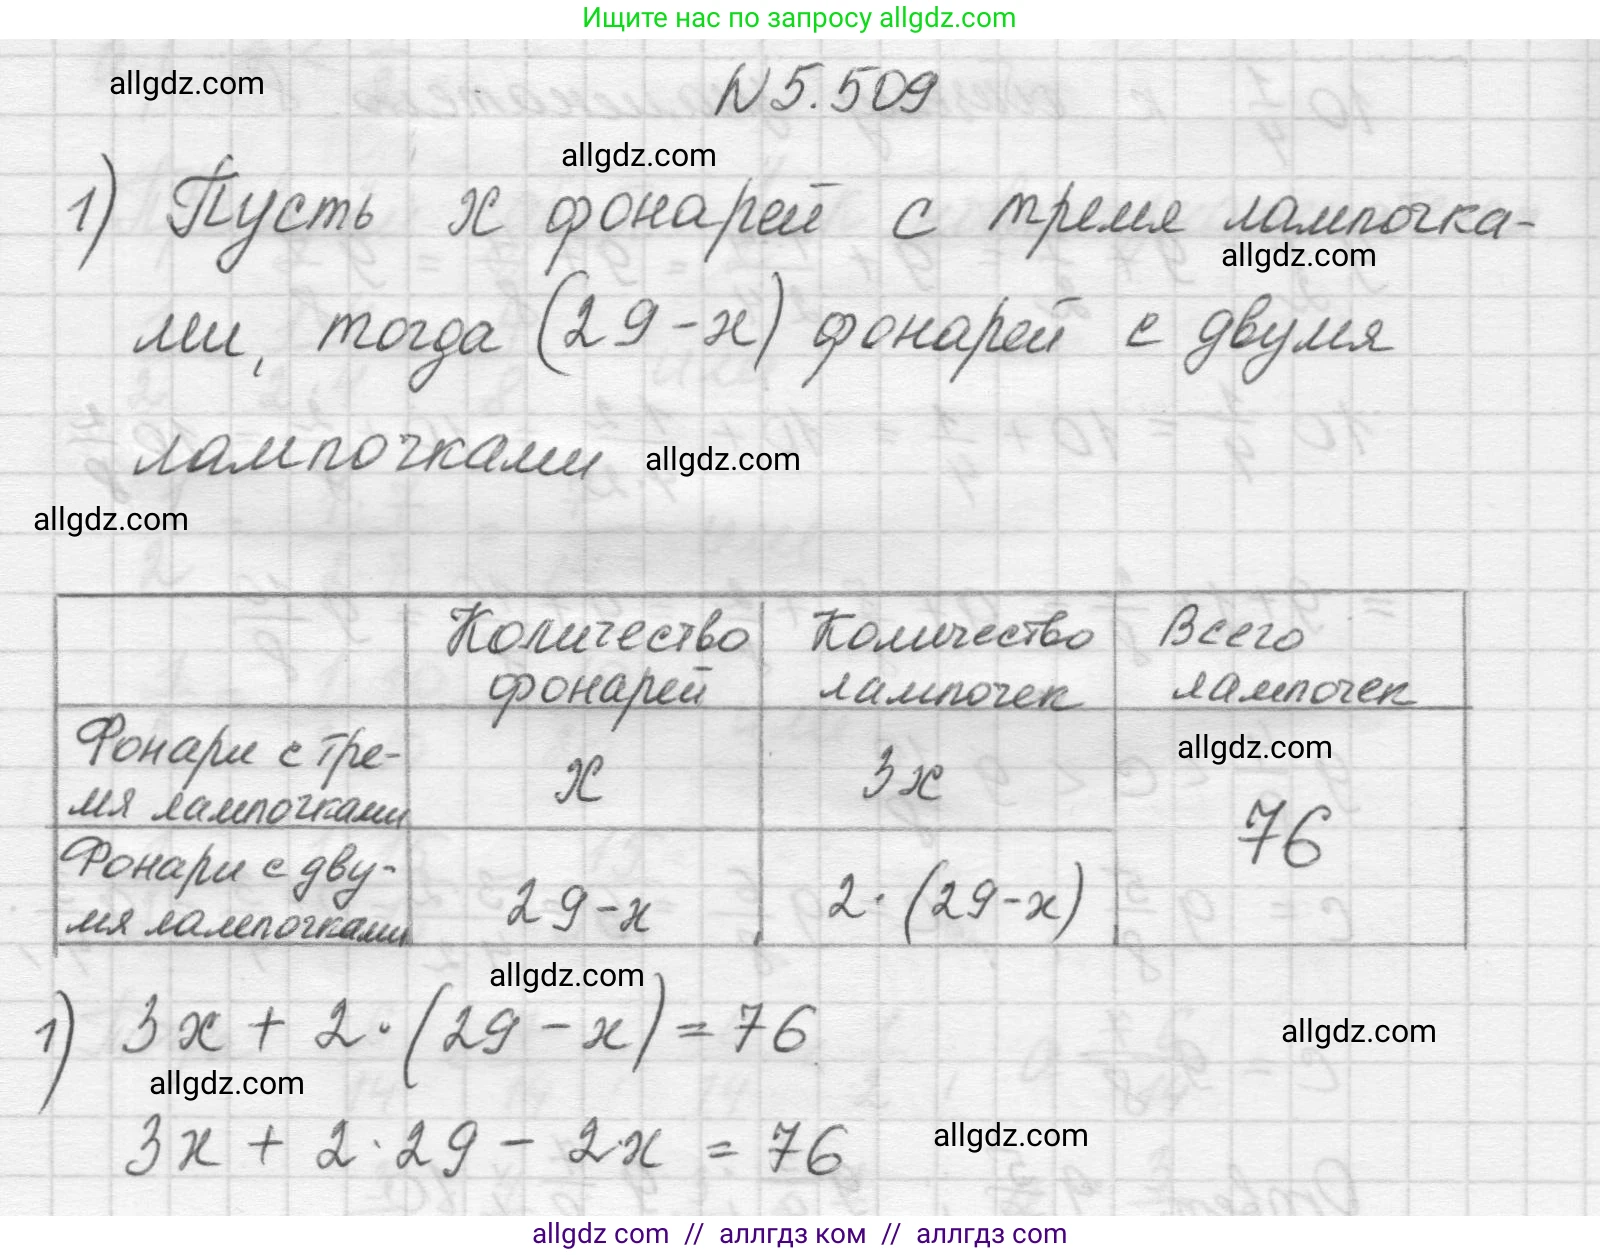 Ищите нас по запросу allgdz.com
allgdz.com
N 5.509
allgdz.com
1) Пусть x фонарей с тремя лампочка-
allgdz.com
ми, тогда (29-x) фонарей с двумя
лампочками allgdz.com
allgdz.com
Количество фонарей Количество лампочек Всего лампочек
allgdz.com
Фонари с тре-
мя лампочками x 3x 76
Фонари с дву-
мя лампочками 29-x 2·(29-x)
allgdz.com
1) 3x + 2·(29-x) = 76
allgdz.com
allgdz.com
3x + 2·29 - 2x = 76
allgdz.com
allgdz com // аллгдз ком // аллгдз com